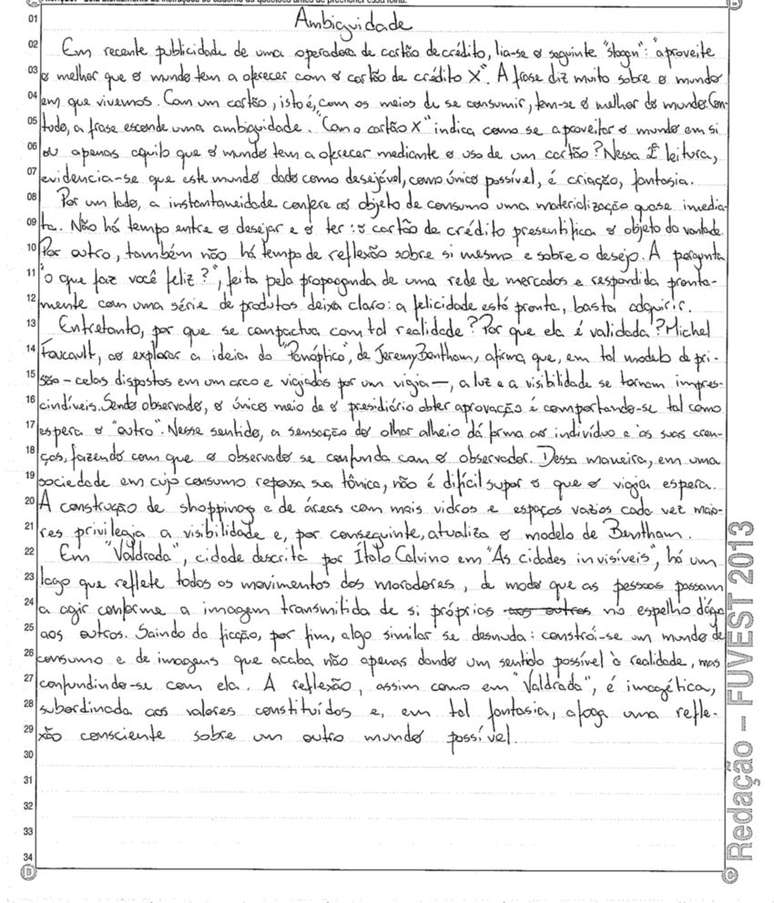 Ambiguidade
01
02 Em recente publicidade de uma operadora de cartão de crédito, lia-se o seguinte "slogn": "aproveite
03 o melhor que o mundo tem a oferecer com o cartão de crédito X". A frase diz muito sobre o mundo
04 em que vivemos. Com um cartão, isto é, com os meios de se consumir, tem-se o melhor do mundo. Con-
05 tudo, a frase esconde uma ambiguidade. "Com o cartão X" indica como se aproveitar o mundo em si
06 ou apenas aquilo que o mundo tem a oferecer mediante o uso de um cartão? Nessa 2ª leitura,
07 evidencia-se que este mundo dado como desejável, como único possível, é criação, fantasia.
08 Por um lado, a instantaneidade confere ao objeto de consumo uma materialização quase imedia-
09 ta. Não há tempo entre o desejar e o ter: o cartão de crédito presentifica o objeto da vontade.
10 Por outro, também não há tempo de reflexão sobre si mesmo e sobre o desejo. A pergunta
11 "o que faz você feliz?", feita pela propaganda de uma rede de mercados e respondida pronta-
12 mente com uma série de produtos deixa claro: a felicidade está pronta, basta adquirir.
13 Entretanto, por que se compactua com tal realidade? Por que ela é validada? Michel
14 Foucault, ao explorar a ideia do "Panóptico", de Jeremy Bentham, afirma que, em tal modelo de pri-
15 são – celas dispostas em um arco e vigiadas por um vigia –, a luz e a visibilidade se tornam impres-
16 cindíveis. Sendo observado, o único meio de o presidiário obter aprovação é comportando-se tal como
17 espera o "outro". Nesse sentido, a sensação do olhar alheio dá forma ao indivíduo e às suas cren-
18 ças, fazendo com que o observado se confunda com o observador. Dessa maneira, em uma
19 sociedade em cujo consumo repousa sua tônica, não é difícil supor o que o vigia espera.
20 A construção de shoppings e de áreas com mais vidros e espaços vazios cada vez maio-
21 res privilegia a visibilidade e, por conseguinte, atualiza o modelo de Bentham.
22 Em "Valdrada", cidade descrita por Ítalo Calvino em "As cidades invisíveis", há um
23 lago que reflete todos os movimentos dos moradores, de modo que as pessoas passam
24 a agir conforme a imagem transmitida de si próprias aos outros no espelho d'água
25 aos outros. Saindo da ficção, por fim, algo similar se desnuda: constrói-se um mundo de
26 consumo e de imagens que acaba não apenas dando um sentido possível à realidade, mas
27 confundindo-se com ela. A reflexão, assim como em "Valdrada", é imagética,
28 subordinada aos valores constituídos e, em tal fantasia, afoga uma refle-
29 xão consciente sobre um outro mundo possível.
30
31
32
33
34
D
C
Redação – FUVEST 2013